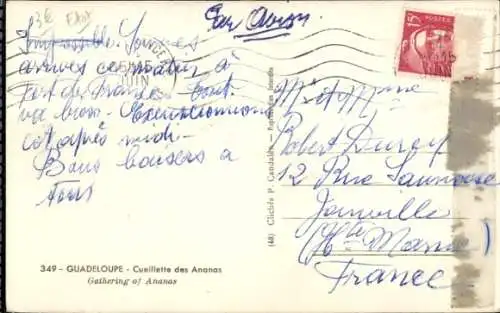 3€
Par Avion
15F
POSTES
Sommes
arrivés ce matin à
Fort de France. Tout
va bien. Excursionnons
cet après midi.
Bons baisers à
tous
Mr et Mme
Robert
12 Rue
Joinville
(Hte Marne)
France
(48) Clichés P. Candalen - Reproduction Interdite
349 - GUADELOUPE - Cueillette des Ananas
Gathering of Ananas